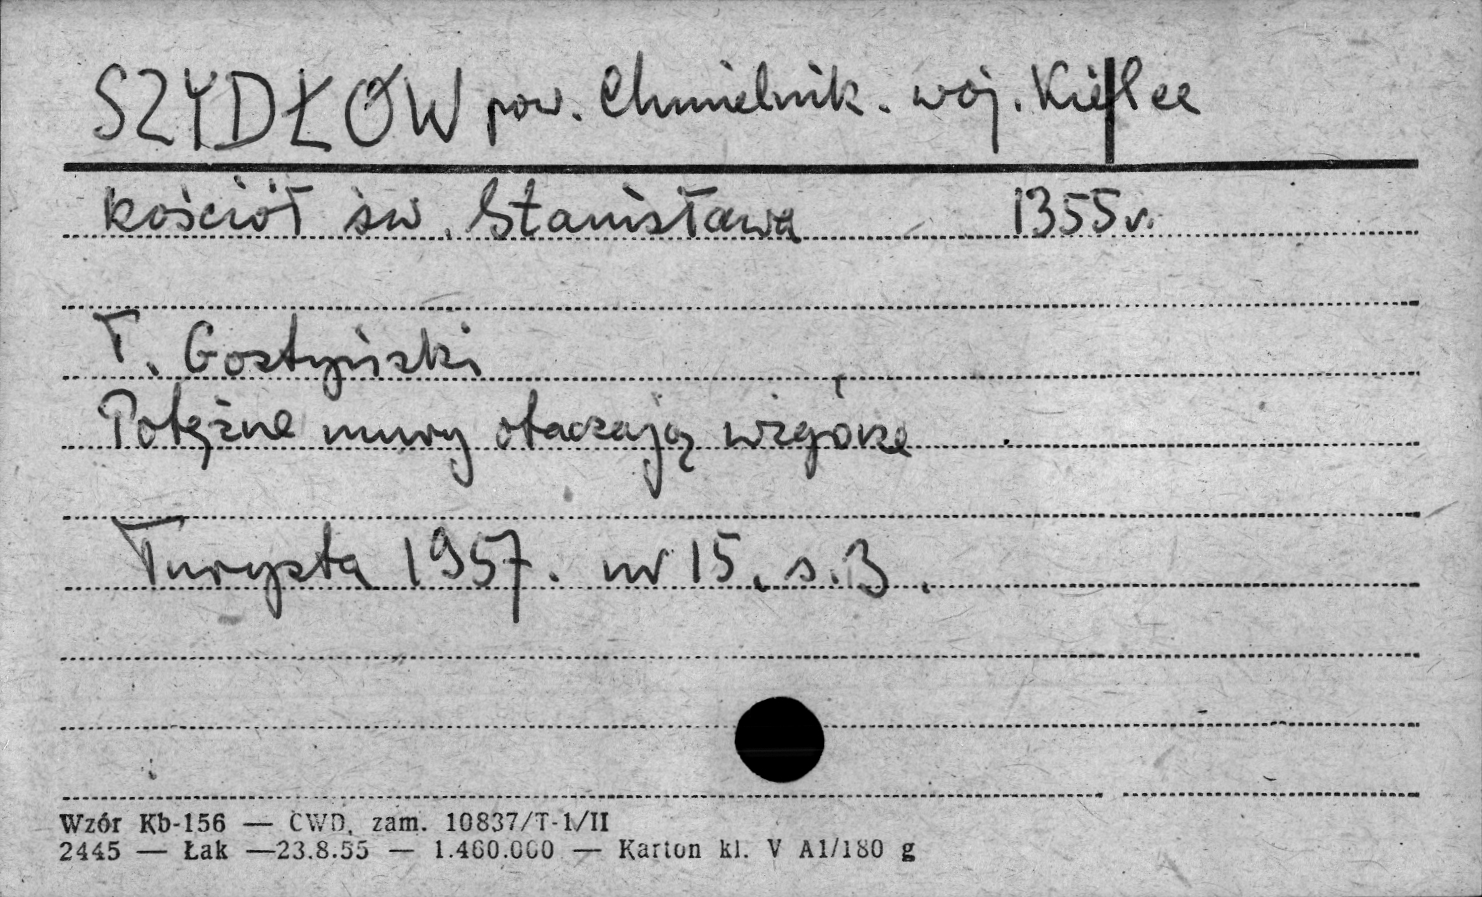 SZYDŁÓW pow. Chmielnik. woj. Kielce
kościół św. Stanisława 1355 r.
T. Gostyński
Potężne mury otaczają wzgórze
Turysta 1957. nr 15. s. 3.
Wzór Kb-156 — CWD, zam. 10837/T-1/II
2445 — Łak —23.8.55 — 1.460.000 — Karton kl. V A1/180 g